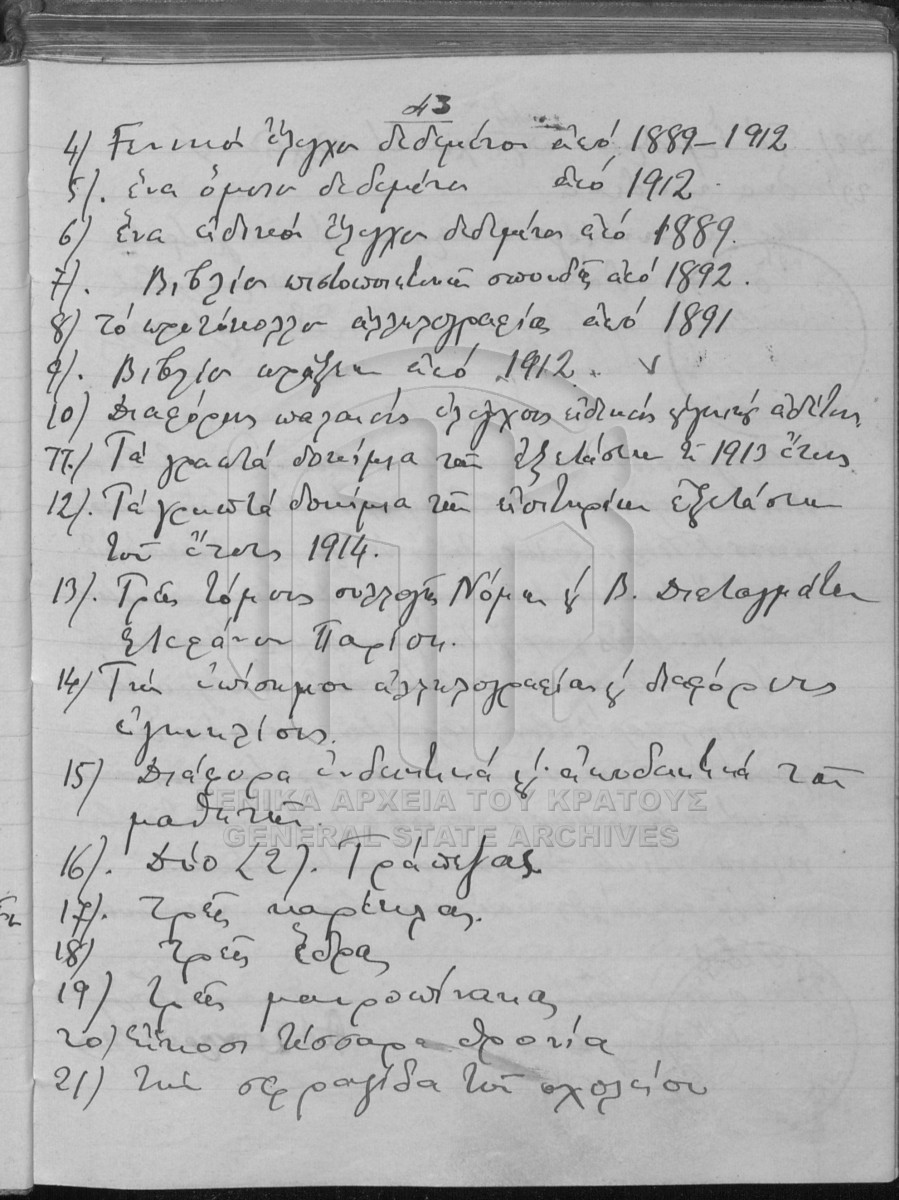 43
4) Γενικόν ἔλεγχον δεδεμένον ἀπό 1889–1912
5). ἕνα ὅμοιον δεδεμένον ἀπό 1912.
6) ἕνα εἰδικόν ἔλεγχον δεδεμένον ἀπό 1889.
7). Βιβλίον πιστοποιητικῶν σπουδῆς ἀπό 1892.
8) τό πρωτόκολλον ἀλληλογραφίας ἀπό 1891
9). Βιβλίον πράξεων ἀπό 1912.
10) Διαφόρους παλαιούς ἐλέγχους εἰδικούς
11.) Τά γραπτά δοκίμια τῶν ἐξετάσεων τοῦ 1913 ἔτους
12). Τά γραπτά δοκίμια τῶν εἰσιτηρίων ἐξετάσεων
τοῦ ἔτους 1914.
13). Τρεῖς τόμους συλλογῆς Νόμων ϗ Β. Διαταγμάτων
Στεφάνου Παρίση.
14) Τήν ἐπίσημον ἀλληλογραφίαν ϗ διαφόρους
ἐγκυκλίους.
15) Διάφορα ἐνδεικτικά ϗ ἀποδεικτικά τῶν
μαθητῶν.
16). Δύο (2). Τράπεζας
17). τρεῖς καρέκλας.
18) τρεῖς ἕδρας
19) τρεῖς μαυροπίνακας
20) Εἴκοσι τέσσαρα θρονία
21) τήν σφραγίδα τοῦ σχολείου
ΓΕΝΙΚΑ ΑΡΧΕΙΑ ΤΟΥ ΚΡΑΤΟΥΣ
GENERAL STATE ARCHIVES